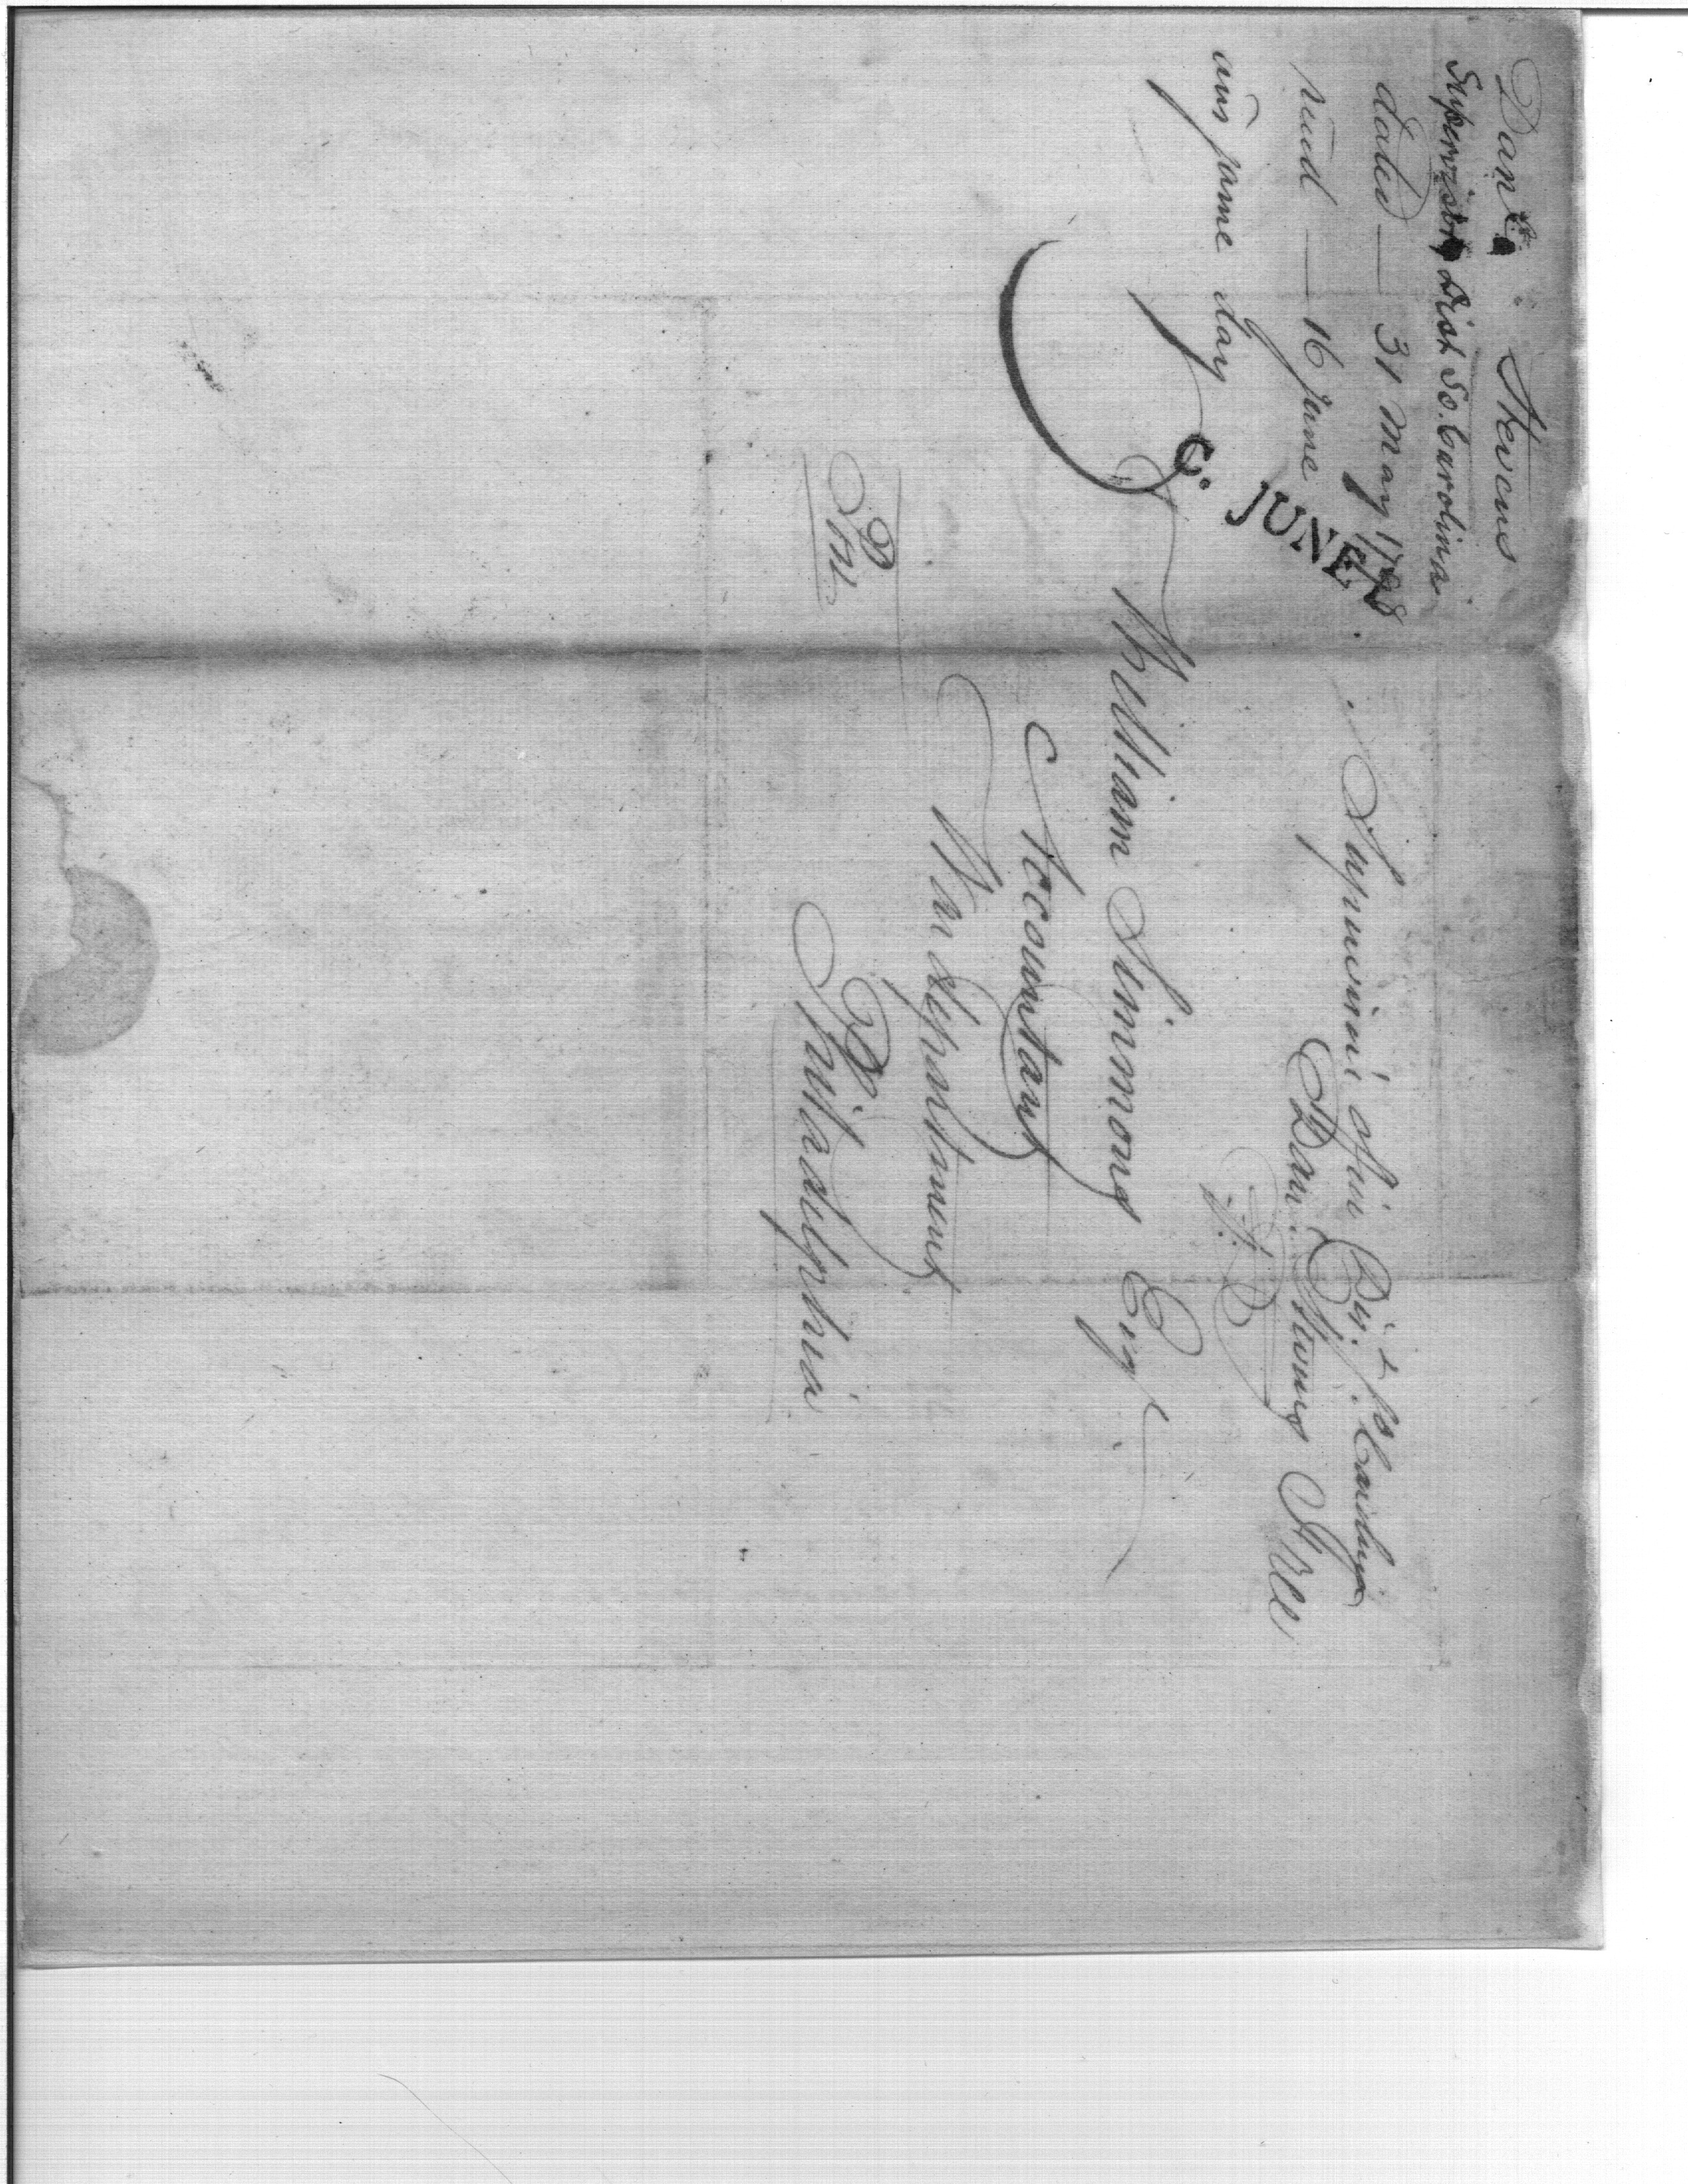 Danl. Stevens
Supervisor Dist So. Carolina
dated — 31 May 1798
recd — 16 June
ans same day
C. JUNE
Supervisors office Dist. So Carolina
Dan: Stevens
William Simmons Esqr
Accountant
War department
Philadelphia